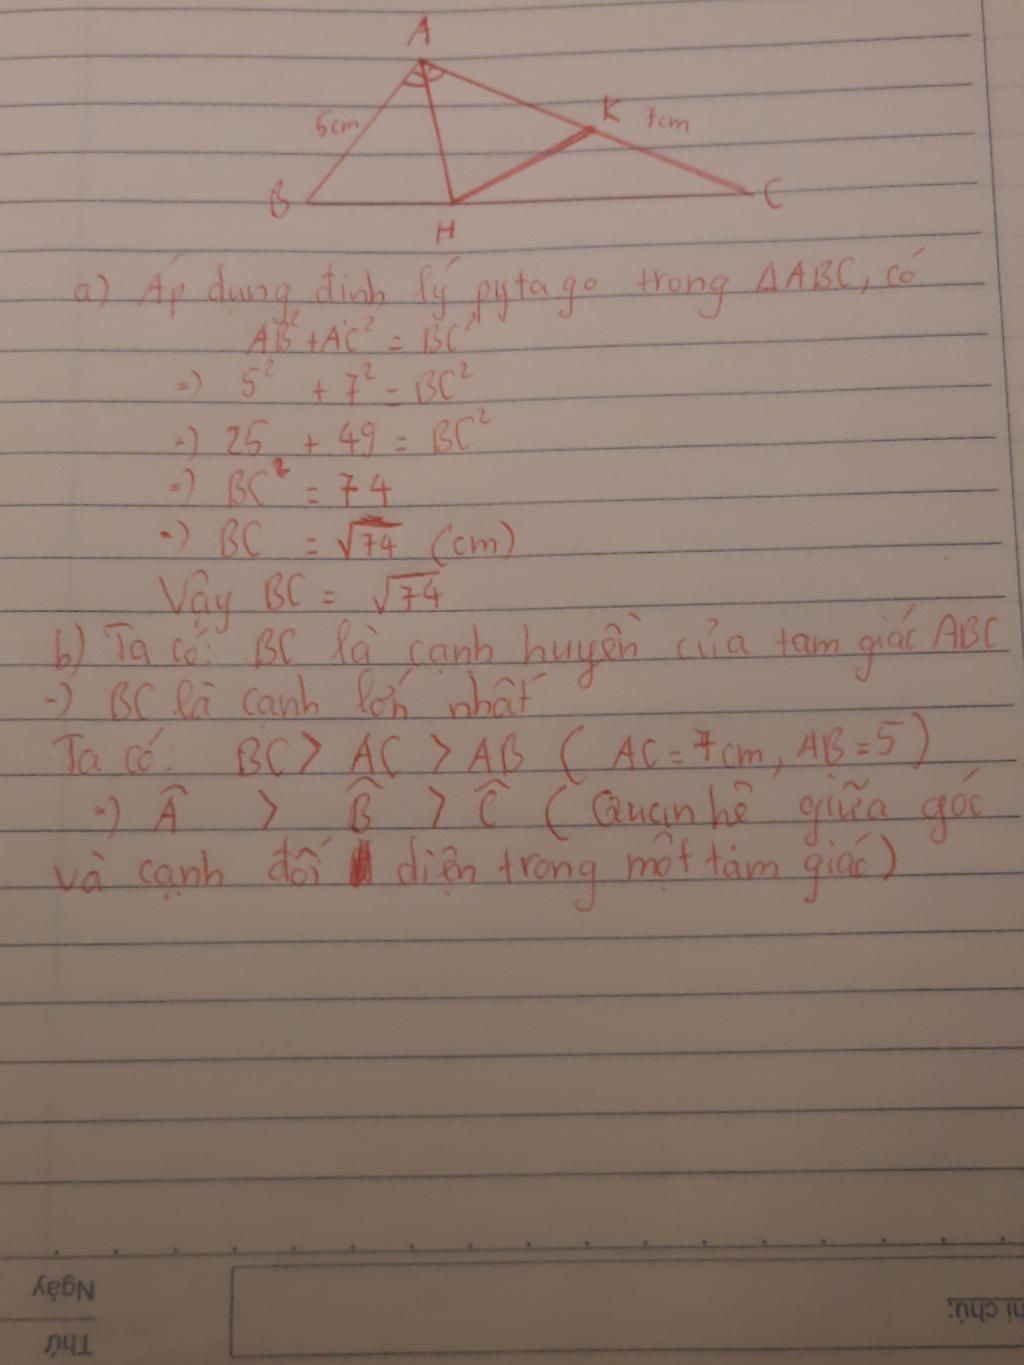 A
5cm
K 7cm
B
C
H
a) Áp dụng định lý pytago trong ΔABC, có
AB² + AC² = BC²
=) 5² + 7² = BC²
=) 25 + 49 = BC²
=) BC² = 74
=) BC = √74 (cm)
Vậy BC = √74
b) Ta có: BC là cạnh huyền của tam giác ABC
=) BC là cạnh lớn nhất
Ta có: BC > AC > AB ( AC = 7cm, AB = 5 )
=) Â > B̂ > Ĉ ( Quan hệ giữa góc
và cạnh đối diện trong một tam giác )
hi chú:
Ngày
Thứ